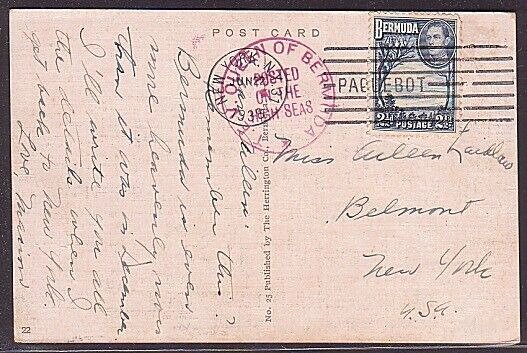 POST CARD
QUEEN OF BERMUDA
POSTED
ON THE
HIGH SEAS
NEW YORK, N.Y.
JUN
1938
PAQUEBOT
BERMUDA
2½d POSTAGE 2½d
Aileen:
Remember this?
Bermuda is even
more heavenly now
than it was in December
I'll write you all
the details when I
get back to New York.
Love Marion
Miss Aileen
Belmont
New York
USA
No. 25 Published by The Herrington Co., Ber
22